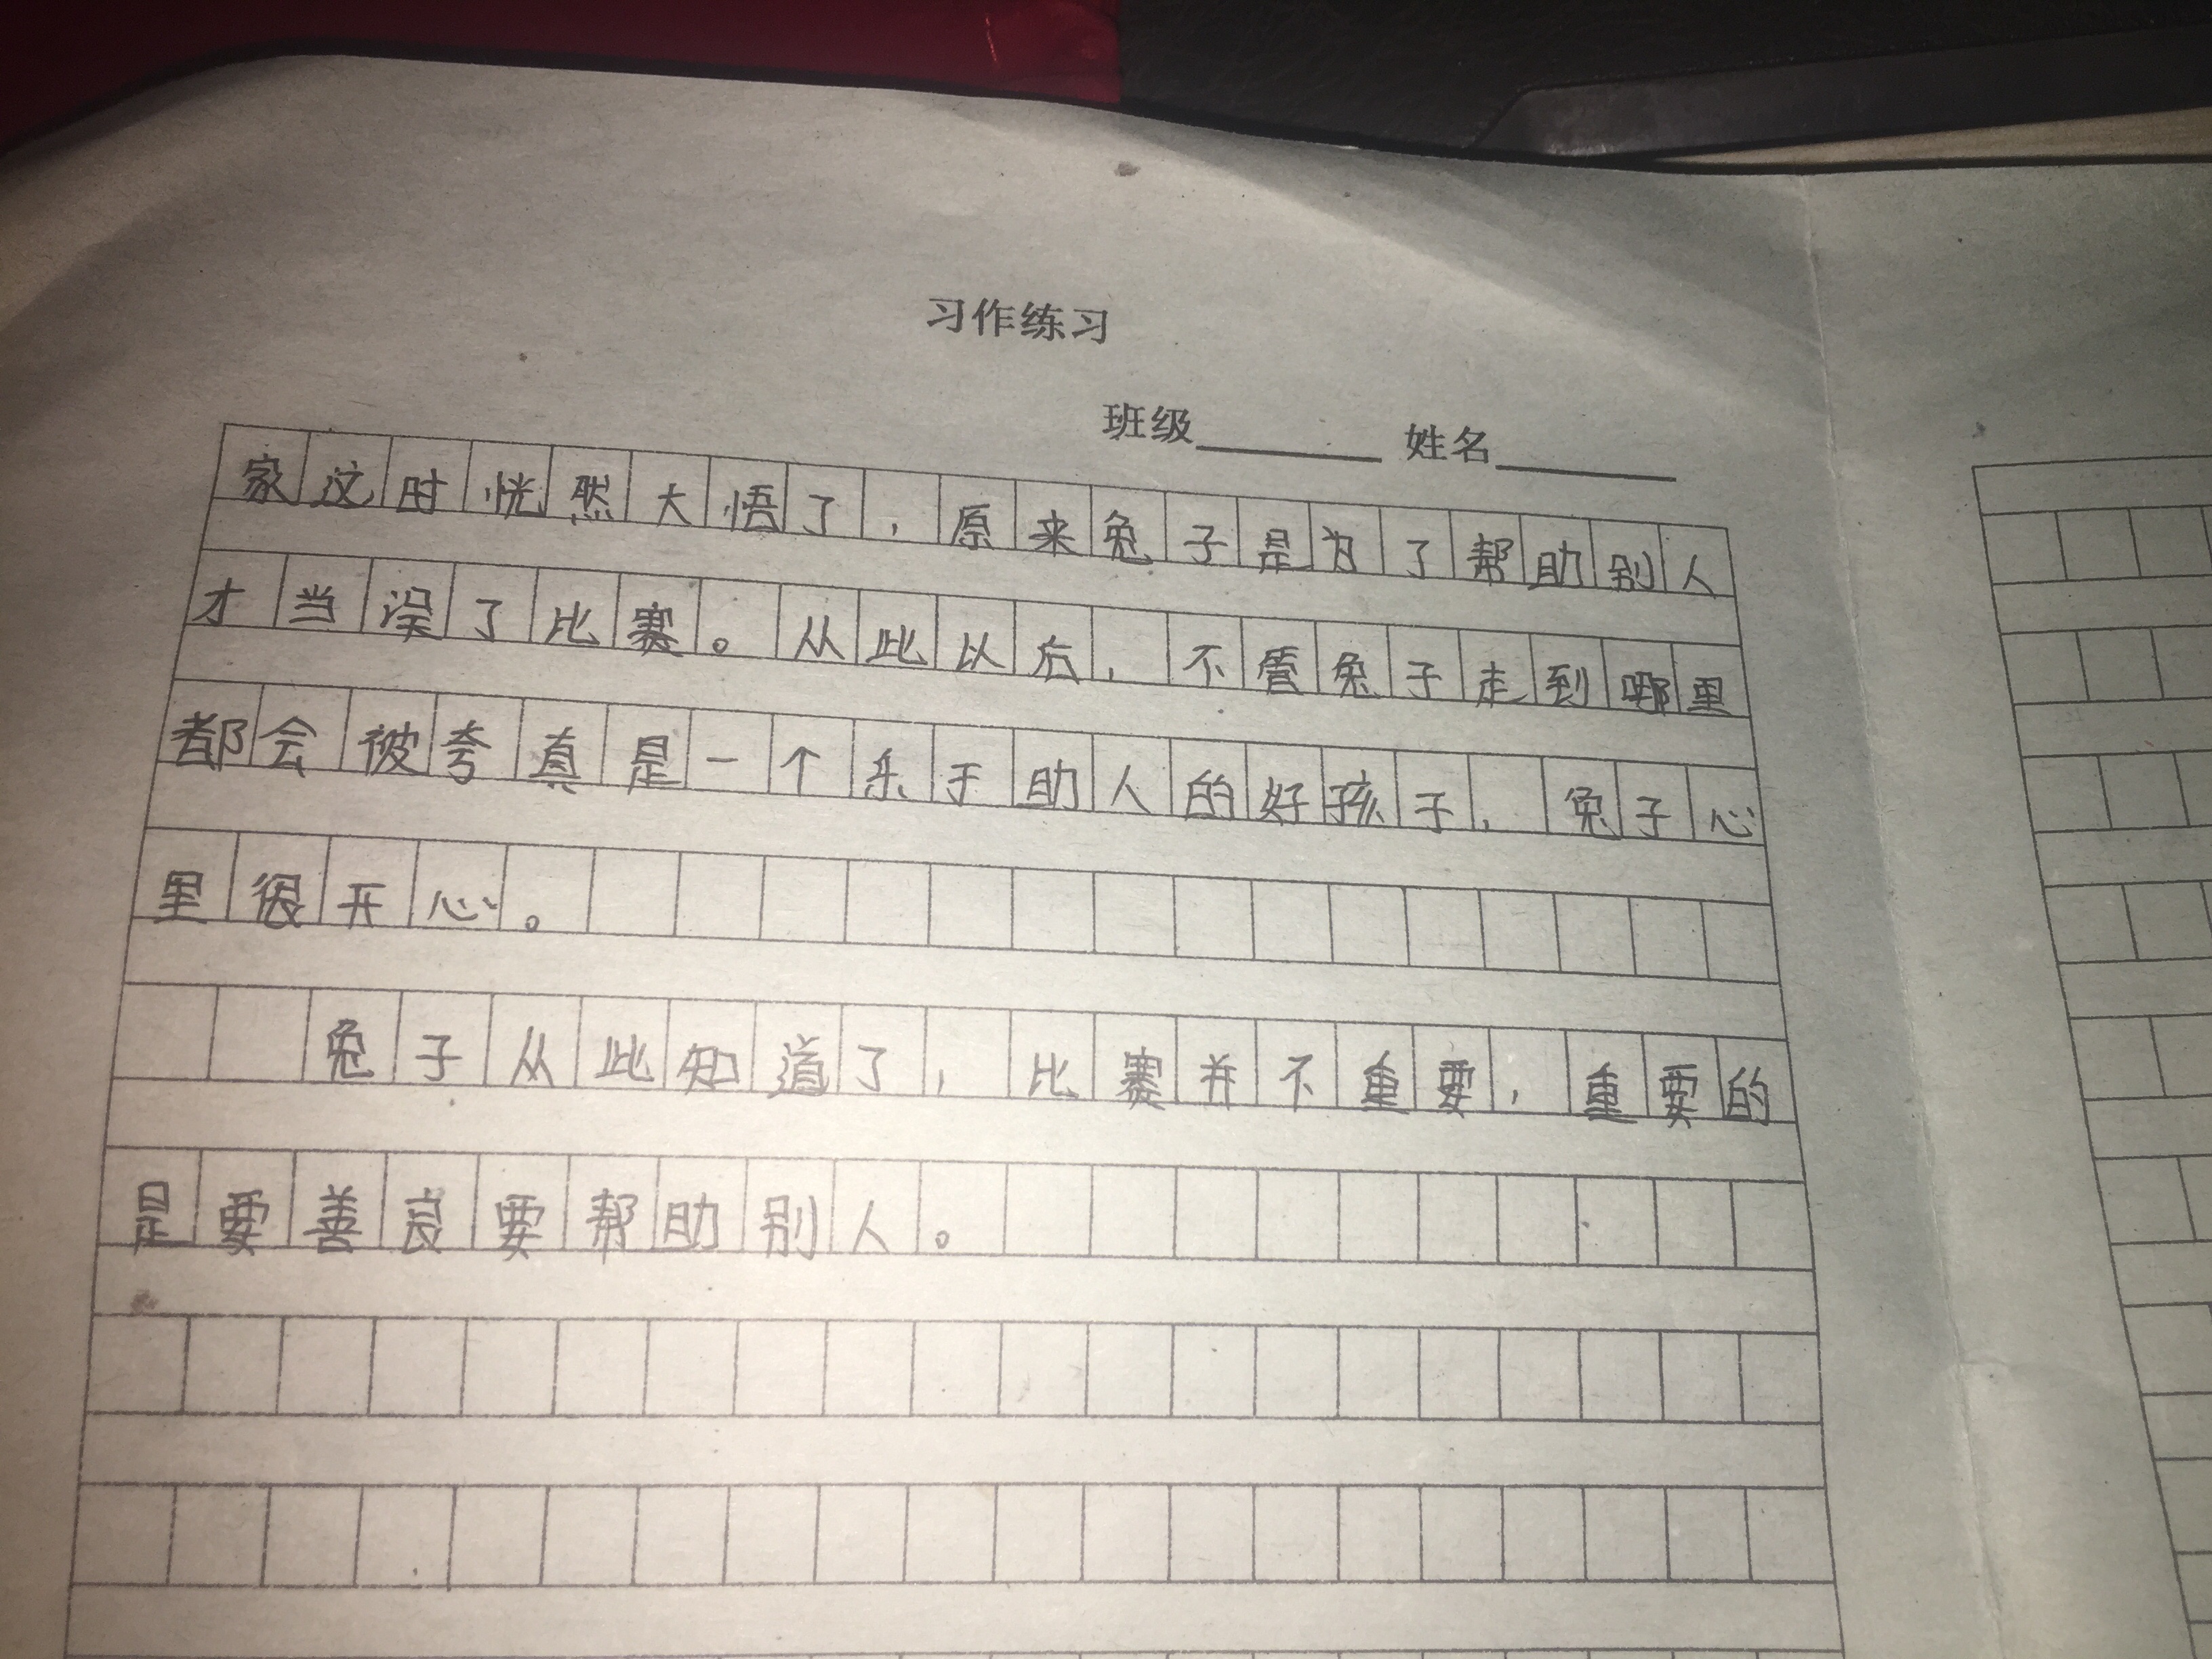 习作练习
班级 姓名
家这时恍然大悟了，原来兔子是为了帮助别人
才当误了比赛。从此以后，不管兔子走到哪里
都会被夸真是一个乐于助人的好孩子，兔子心
里很开心。
兔子从此知道了，比赛并不重要，重要的
是要善良要帮助别人。